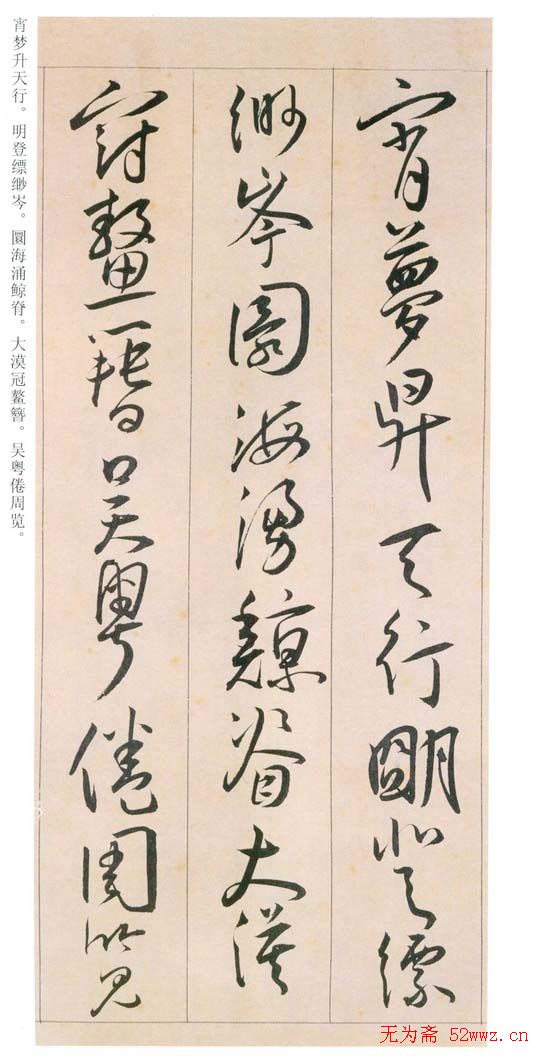 宵夢昇天行朙登縹
緲岑圜海湧鯨脊大漠
冠鼇簪吳粵倦周覽
宵梦升天行。明登缥缈岑。圜海涌鲸脊。大漠冠鳌簪。吴粤倦周览。
无为斋 52wwz.cn